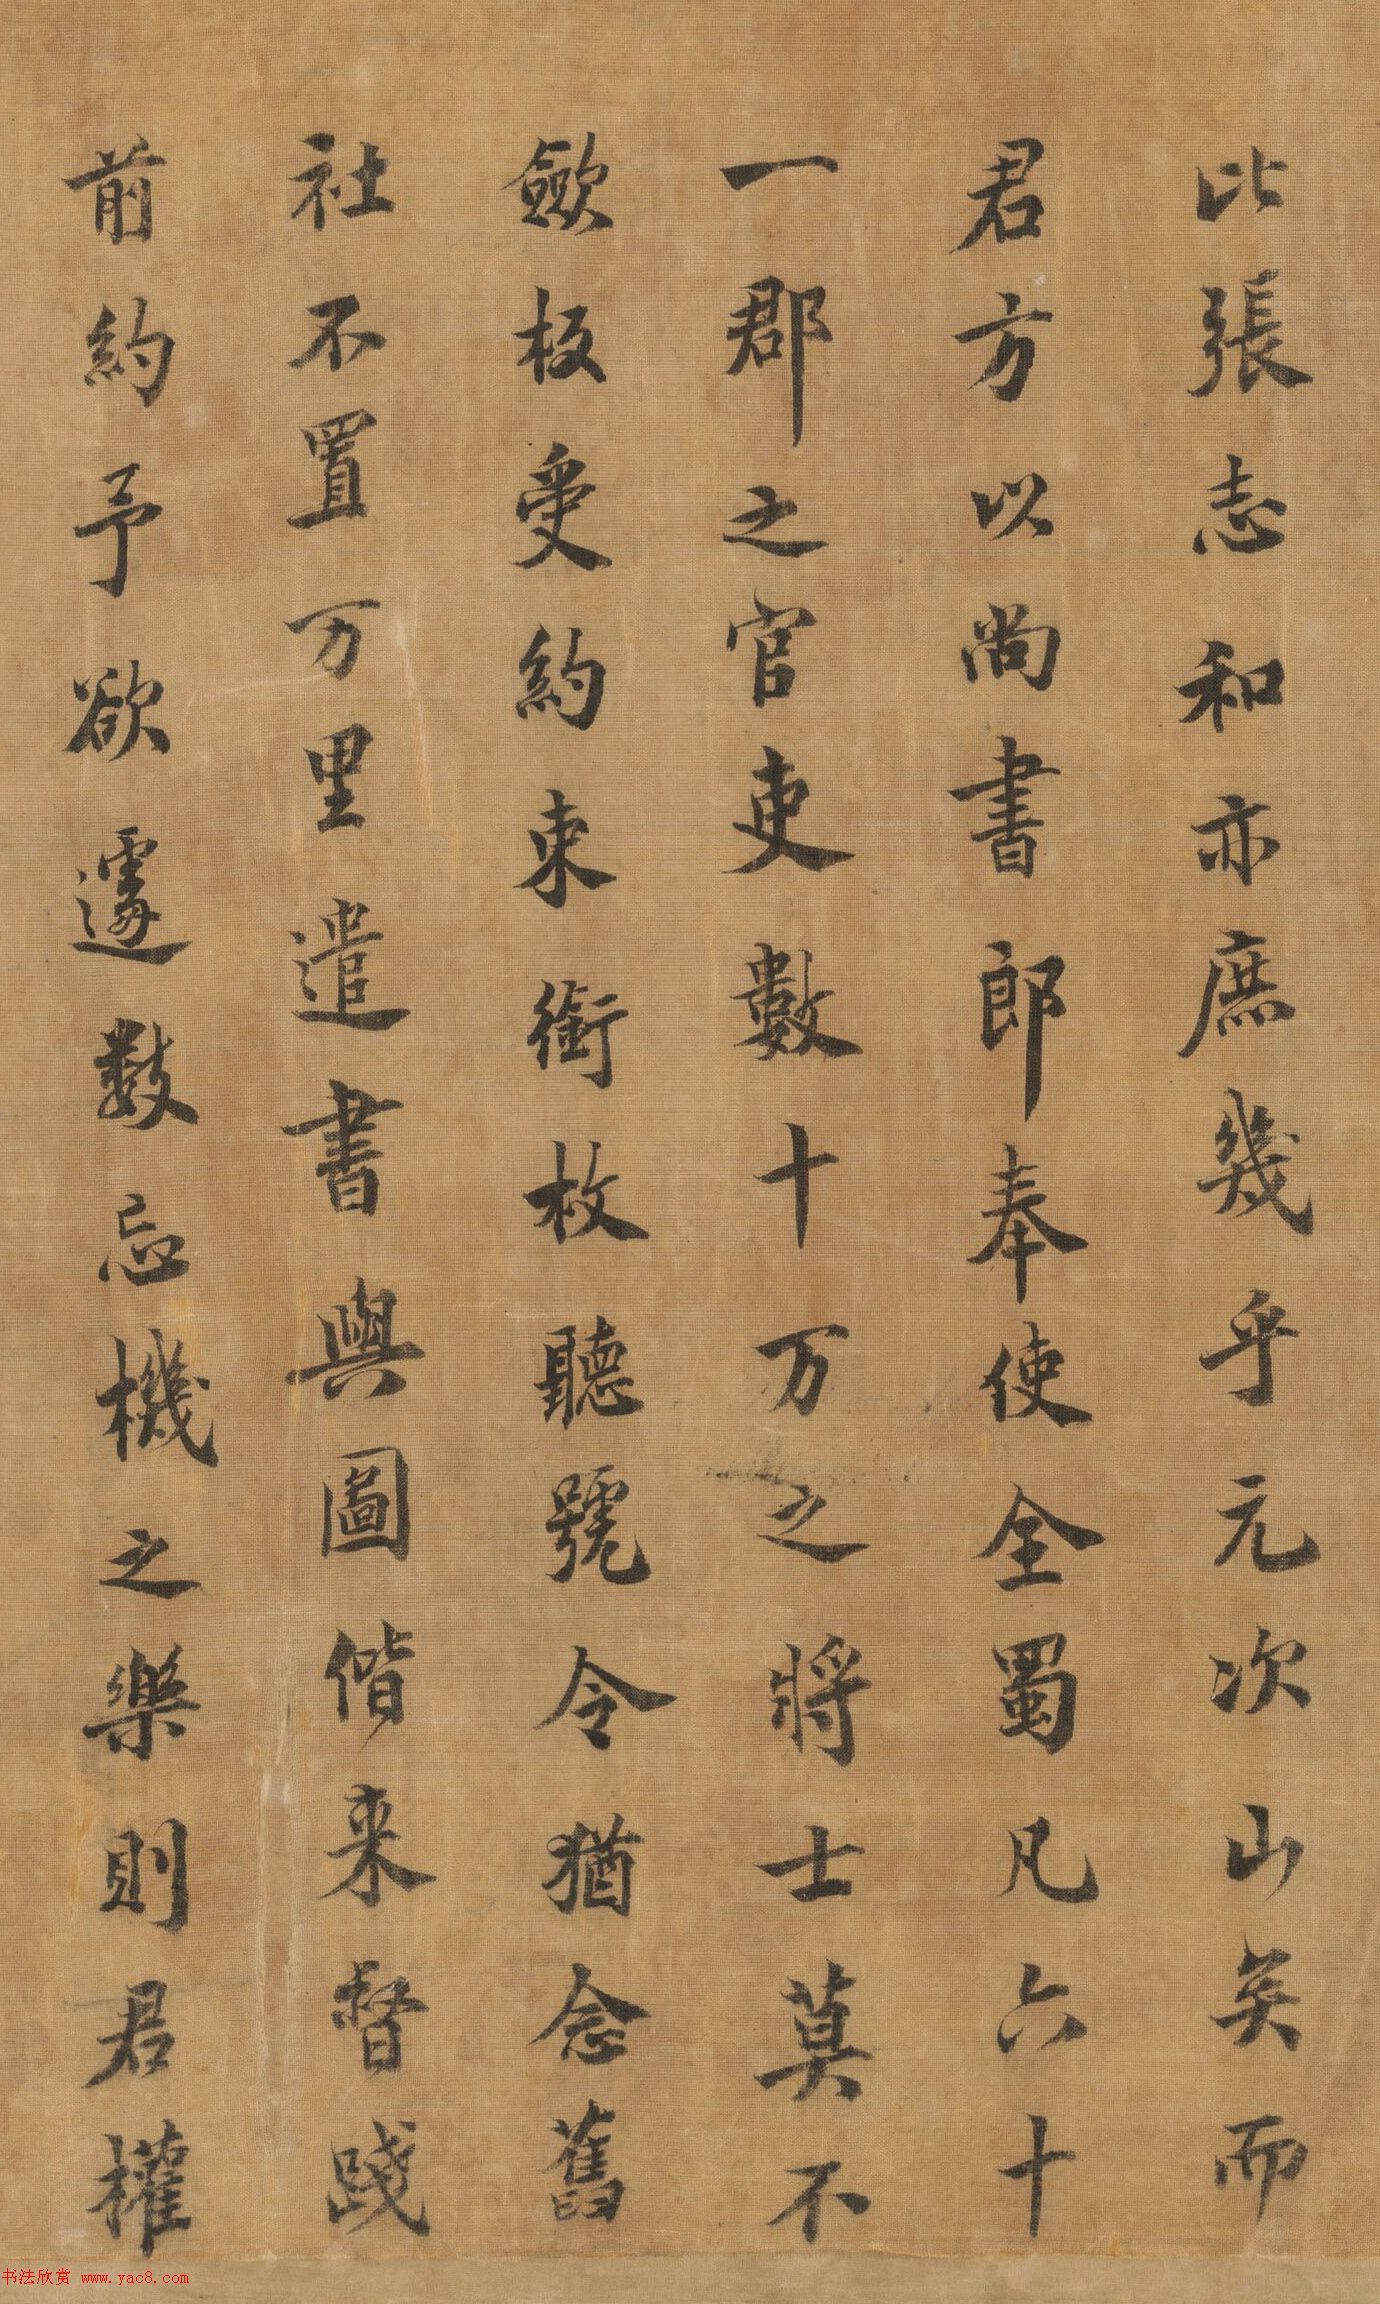 比張志和亦庶幾乎元次山矣而
君方以尚書郎奉使全蜀凡六十
一郡之官吏數十万之將士莫不
歛板受約束銜枚聽號令猶念舊
社不置万里遣書與圖偕来督踐
前約予欲遽數忘機之樂則君權
书法欣赏 www.yac8.com